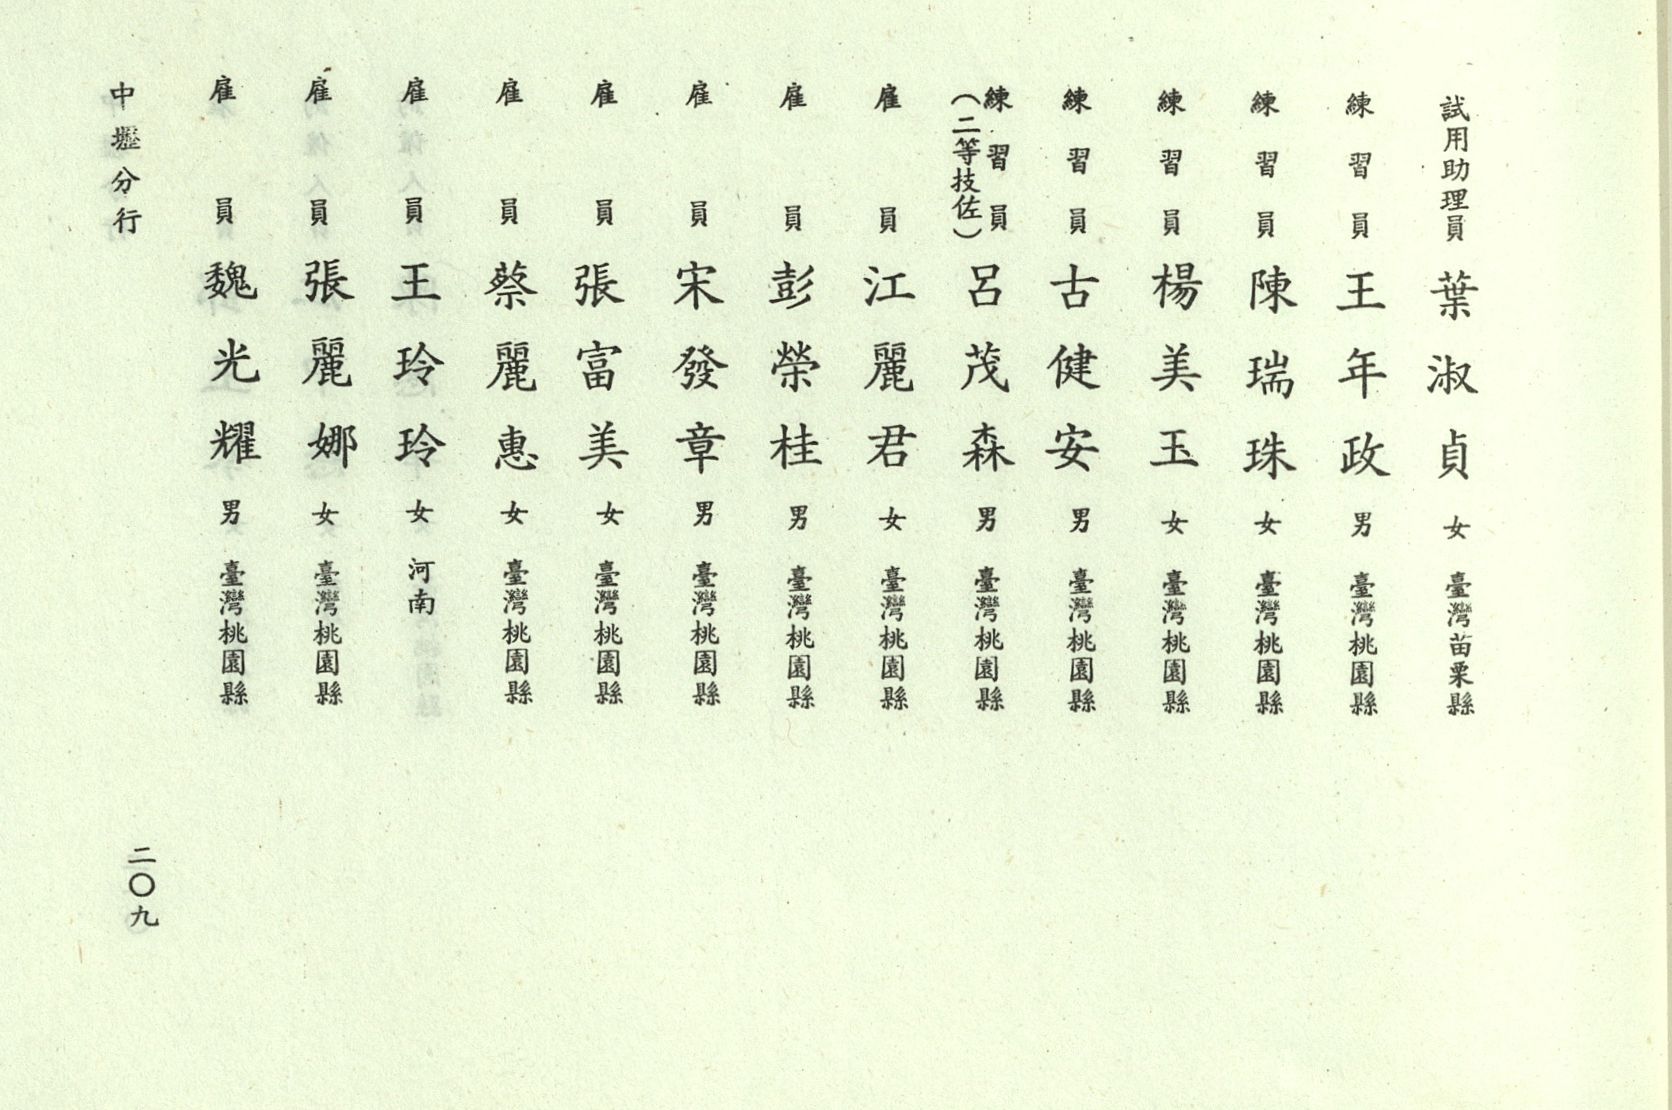 試用助理員 葉淑貞 女 臺灣苗栗縣
練習員 王年政 男 臺灣桃園縣
練習員 陳瑞珠 女 臺灣桃園縣
練習員 楊美玉 女 臺灣桃園縣
練習員 古健安 男 臺灣桃園縣
練習員 呂茂森 男 臺灣桃園縣
（二等技佐）
雇員 江麗君 女 臺灣桃園縣
雇員 彭榮桂 男 臺灣桃園縣
雇員 宋發章 男 臺灣桃園縣
雇員 張富美 女 臺灣桃園縣
雇員 蔡麗惠 女 臺灣桃園縣
雇員 王玲玲 女 河南
雇員 張麗娜 女 臺灣桃園縣
雇員 魏光耀 男 臺灣桃園縣
中壢分行 二〇九